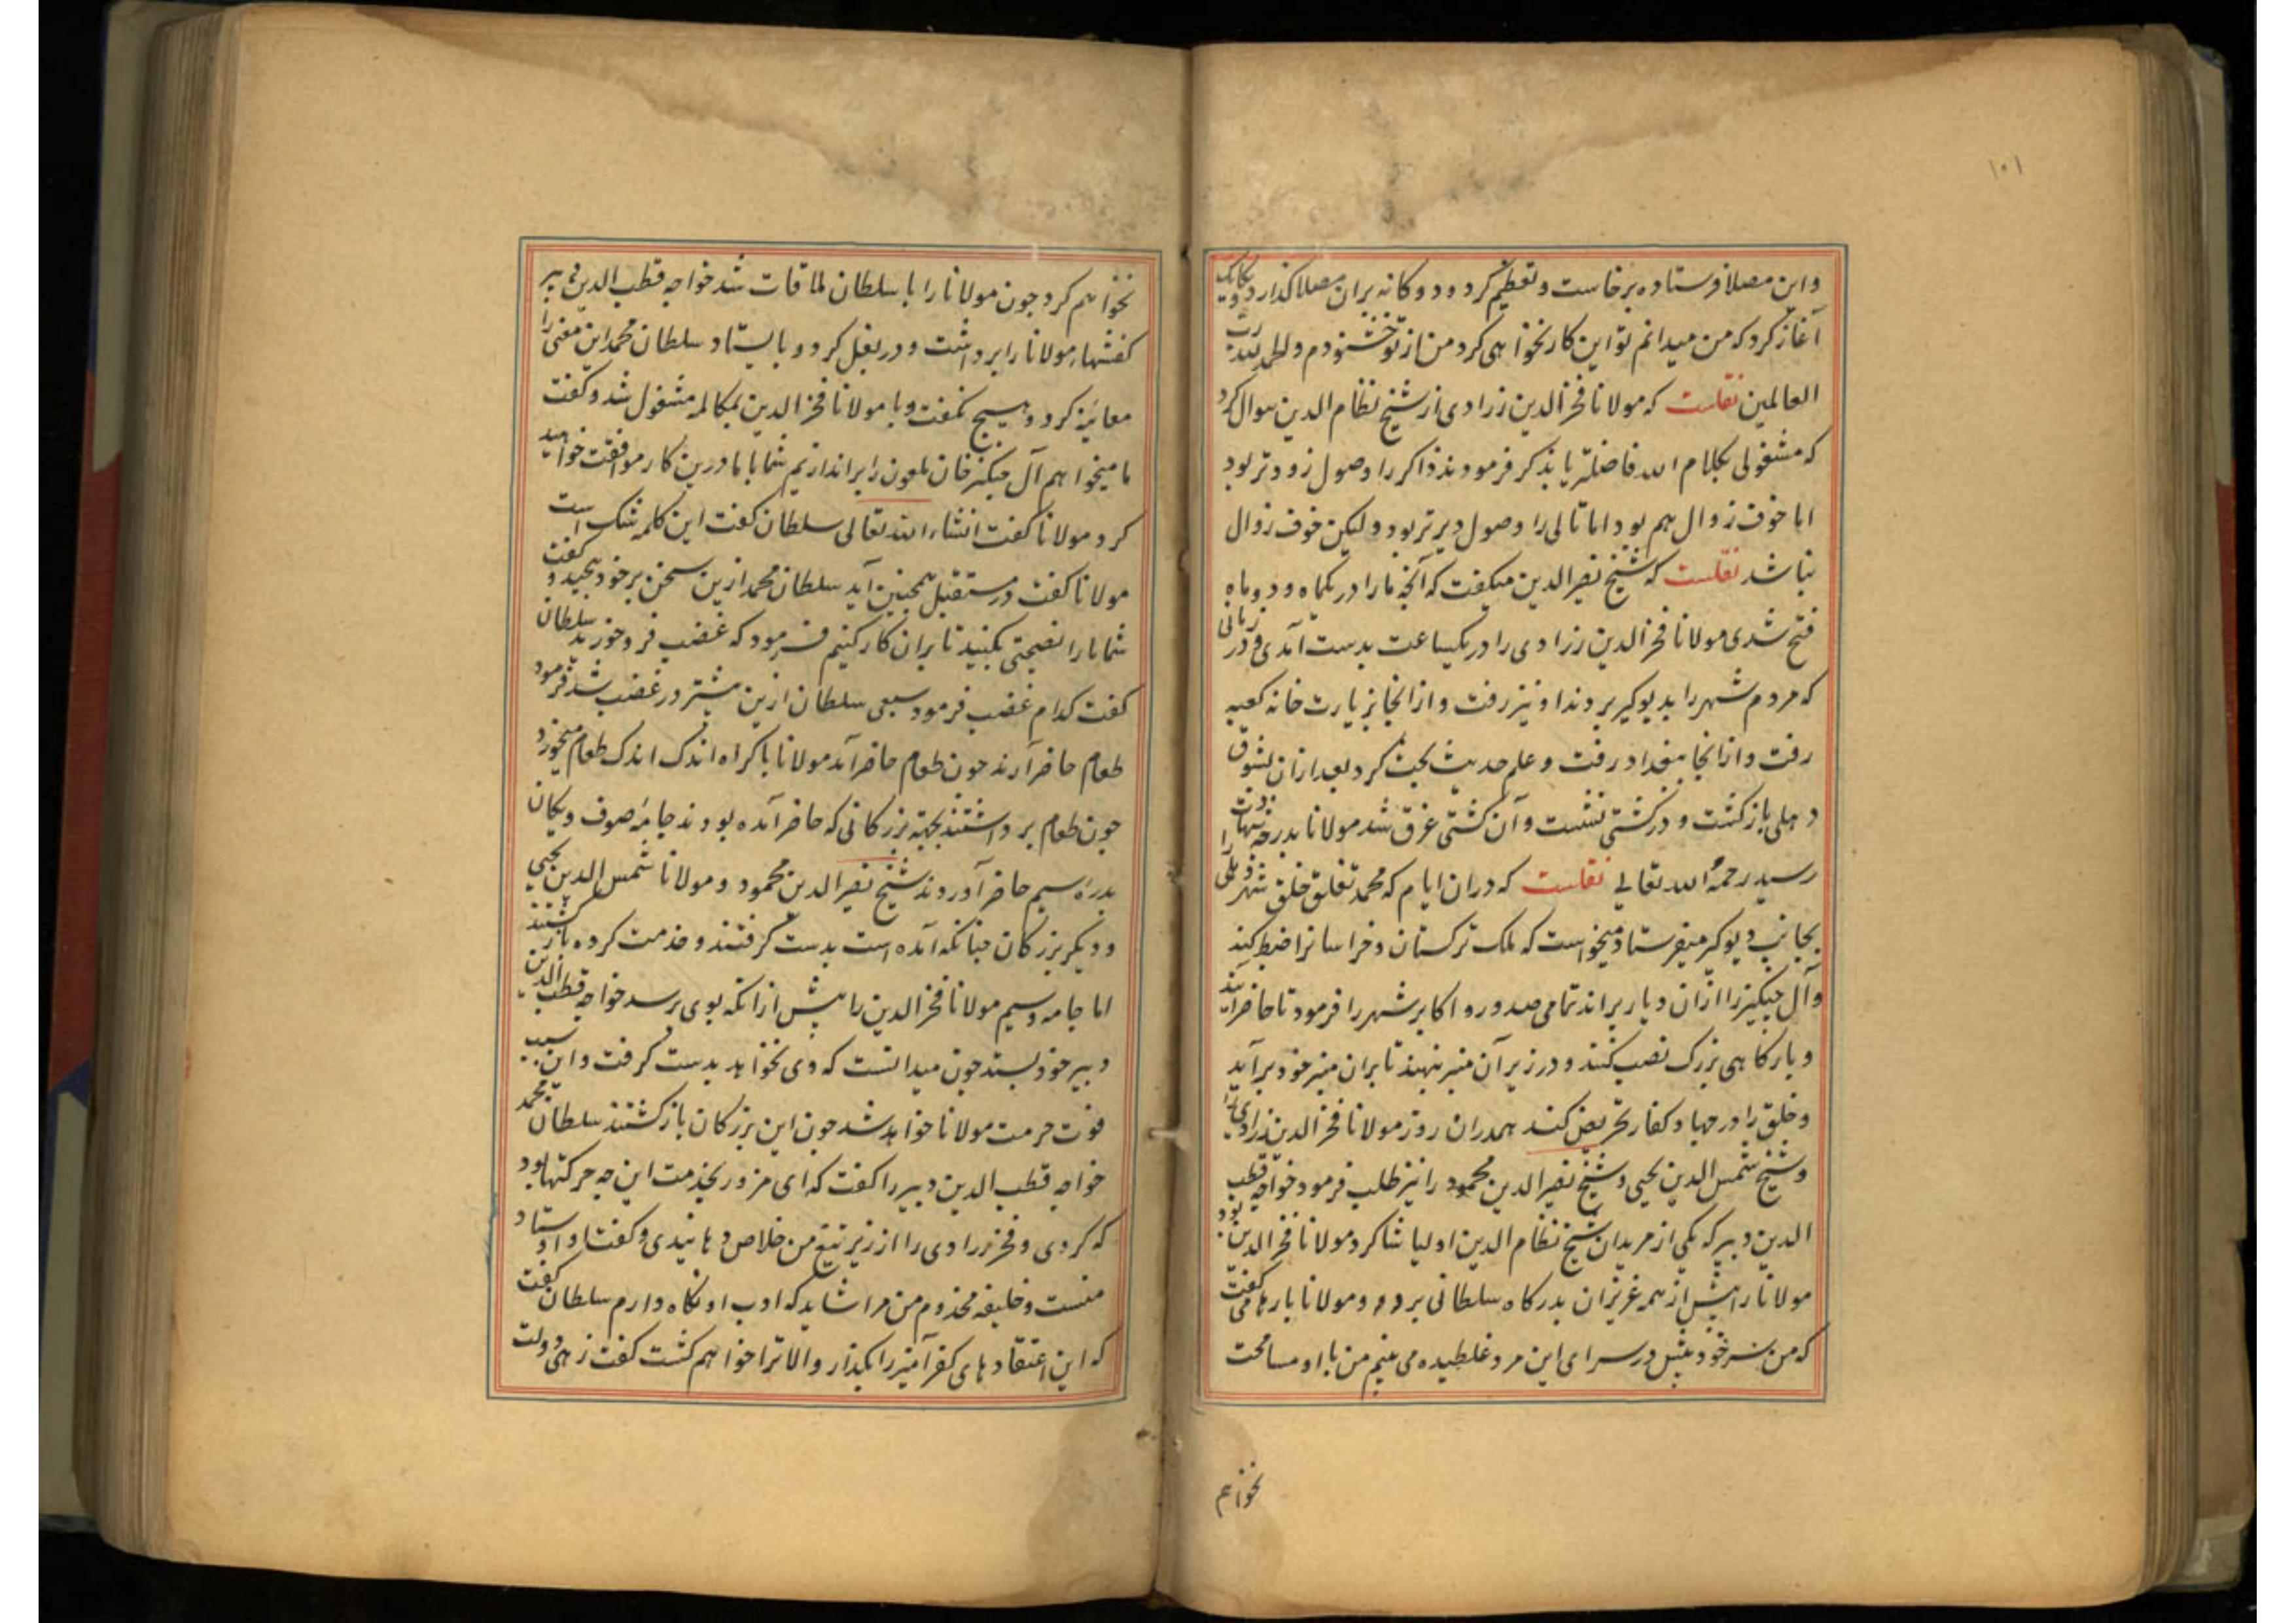 ۱۰۱
واین مصلا فرستاده برخاست و تعظیم کرد و دوکانه بران مصلا کذارد
آغاز کرد که من میدانم تو این کار نخواهی کرد من از تو خشنودم و الحمد لله رب
العالمین نقلست که مولانا فخرالدین زرادی از شیخ نظام الدین سوال کرد
که مشغولی بکلام الله فاضلتر یا بذکر فرمودند ذاکر را وصول زودتر بود
اما خوف زوال هم بود اما تالی را وصول دیرتر بود ولیکن خوف زوال
نباشد نقلست که شیخ نصیرالدین میکفت که آنچه مارا در یکماه و دو ماه
فتح شدی مولانا فخرالدین زرادی را در یکساعت بدست آمدی و در زمانی
که مردم شهر را بدیوکیر بردند او نیز رفت و از انجا بزیارت خانه کعبه
رفت و از انجا ببغداد رفت و علم حدیث بحث کرد بعد ازان بشوق
دهلی بازکشت و در کشتی نشست و آن کشتی غرق شد مولانا بدرجه شهادت
رسید رحمة الله تعالی نقلست که دران ایام که محمد تغلق خلق شهر دهلی را
بجانب دیوکیر میفرستاد میخواست که ملک ترکستان و خراسانرا ضبط کند
وآل چنکیز را ازان دیار براند تمامی صدور و اکابر شهر را فرمود تا حاضر آیند
و بارکاهی بزرک نصب کنند و در زیر آن منبر بنهند تا بران منبر خود برآید
وخلق را در جهاد کفار تحریض کند همدران روز مولانا فخرالدین زرادی را
وشیخ شمس الدین یحیی و شیخ نصیرالدین محمود را نیز طلب فرمود خواجه قطب
الدین دبیر که یکی از مریدان شیخ نظام الدین اولیا شاکرد مولانا فخرالدین بود
مولانا را پیش از همه عزیزان بدرکاه سلطانی برد و مولانا بارها می کفت
که من سر خود پیش در سرای این مرد غلطیده می بینم من با او مسامحت
نخواهم
نخواهم کرد چون مولانا را با سلطان ملاقات شد خواجه قطب الدین دبیر
کفشهای مولانا را برداشت و در بغل کرد و بایستاد سلطان محمد این معنی را
معاینه کرد و هیچ نکفت و با مولانا فخرالدین بمکالمه مشغول شد و کفت
ما میخواهم آل چنکیز خان ملعون را براندازیم شما با ما درین کار موافقت خواهید
کرد مولانا کفت انشاء الله تعالی سلطان کفت این کلمه شک است
مولانا کفت در مستقبل همچنین آید سلطان محمد ازین سخن بر خود پیچید و کفت
شما مارا نصیحتی بکنید تا بران کار کنیم فرمود که غضب فرو خورید سلطان
کفت کدام غضب فرمود سبعی سلطان ازین بیشتر در غضب شد فرمود
طعام حاضر آرند چون طعام حاضر آمد مولانا باکراه اندک اندک طعام میخورد
چون طعام برداشتند بجهته بزرکانی که حاضر آمده بودند جامۀ صوف و یکان
بدرۀ سیم حاضر آوردند شیخ نصیرالدین محمود و مولانا شمس الدین یحیی
و دیکر بزرکان چنانکه آمده است بدست کرفتند و خدمت کرده بازکشتند
اما جامه و سیم مولانا فخرالدین را پیش ازانکه بوی برسد خواجه قطب الدین
دبیر خود بستد چون میدانست که وی نخواهد بدست کرفت و این سبب
فوت حرمت مولانا خواهد شد چون این بزرکان بازکشتند سلطان محمد
خواجه قطب الدین دبیر را کفت که ای مزور بخدمت این چه حرکتها بود
که کردی و فخر زرادی را از زیر تیغ من خلاص دهانیدی و کفت او استاد
منست و خلیفه مخدوم من مرا شاید که ادب او نکاه دارم سلطان کفت
که این اعتقادهای کفرآمیز را بکذار والا ترا خواهم کشت کفت زهی دولت